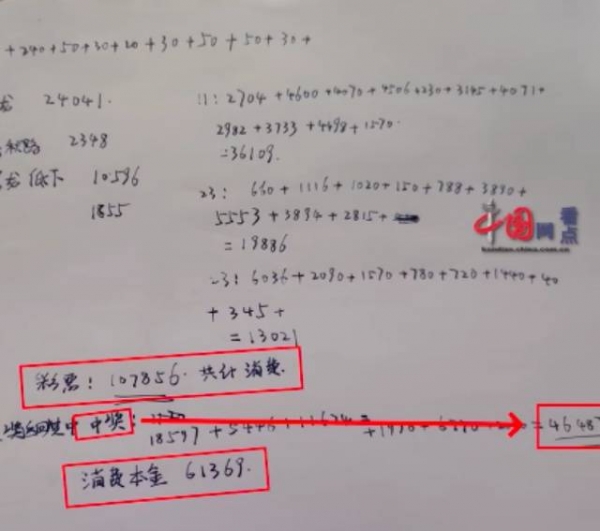 +240+50+30+20+30+50+50+30+
24041.
11: 2704+4600+4070+4506+230+3145+4071+
2348
2982+3733+4498+1570.
=36109.
低下 10596
1855
23: 660+1116+1020+150+788+3890+
5553+3894+2815+
=19886
-3: 6036+2090+1570+780+720+1440+40
+345+
=13021
中国网 看点
彩票: 107856. 共计消费.
中 中奖:
18597+5446+11624
=4648
消费本金 61369.